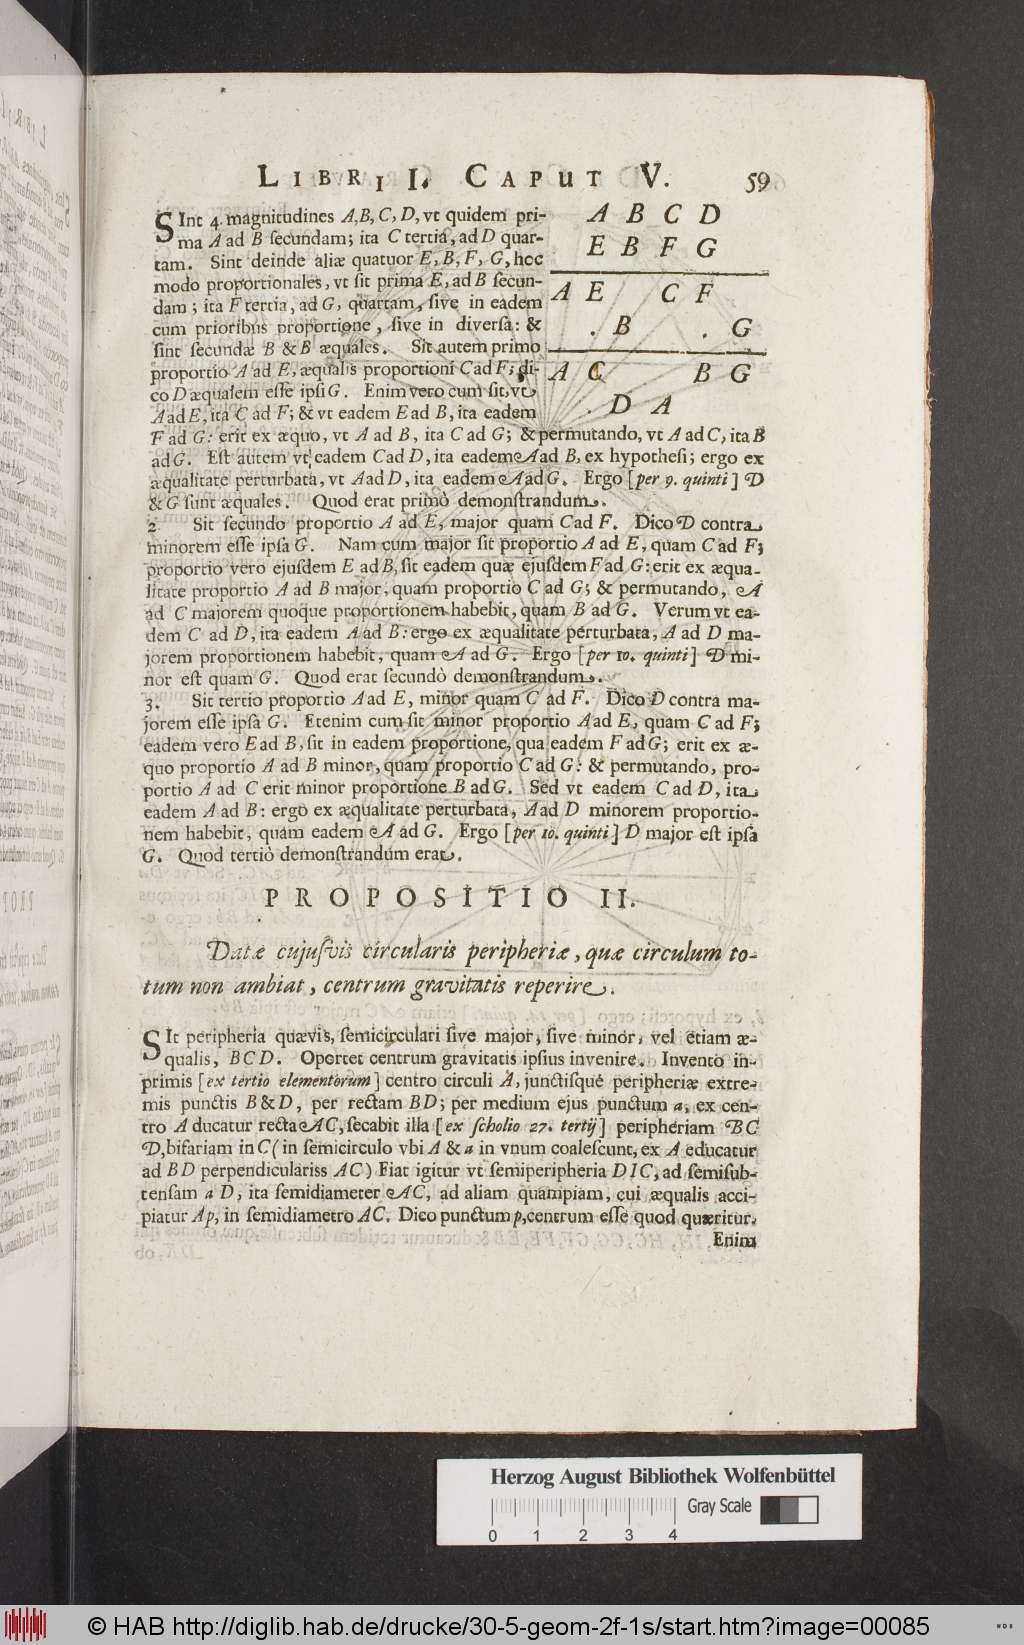 LIBRI I. CAPUT V. 59
SInt 4. magnitudines A,B,C,D, vt quidem pri-
ma A ad B ſecundam; ita C tertia, ad D quar-
tam. Sint deinde aliæ quatuor E, B, F, G, hoc
modo proportionales, vt ſit prima E, ad B ſecun-
dam; ita F tertia, ad G, quartam, ſive in eadem
cum prioribus proportione, ſive in diverſa: &
ſint ſecundæ B & B æquales. Sit autem primo
proportio A ad E, æqualis proportioni C ad F; di-
co D æqualem eſſe ipſi G. Enim vero cum ſit, vt
A ad E, ita C ad F; & vt eadem E ad B, ita eadem
A B C D
E B F G
A E C F
. B . G
A C B G
. D A
F ad G: erit ex æquo, vt A ad B, ita C ad G; & permutando, vt A ad C, ita B
ad G. Eſt autem vt eadem C ad D, ita eadem A ad B, ex hypotheſi; ergo ex
æqualitate perturbata, vt A ad D, ita eadem A ad G. Ergo [per 9. quinti] D
& G ſunt æquales. Quod erat primò demonſtrandum.
2. Sit ſecundo proportio A ad E, major quam C ad F. Dico D contra
minorem eſſe ipſa G. Nam cum major ſit proportio A ad E, quam C ad F;
proportio vero ejuſdem E ad B, ſit eadem quæ ejuſdem F ad G: erit ex æqua-
litate proportio A ad B major, quam proportio C ad G; & permutando, A
ad C majorem quoque proportionem habebit, quam B ad G. Verum vt ea-
dem C ad D, ita eadem A ad B: ergo ex æqualitate perturbata, A ad D ma-
jorem proportionem habebit, quam A ad G. Ergo [per 10. quinti] D mi-
nor eſt quam G. Quod erat ſecundò demonſtrandum.
3. Sit tertio proportio A ad E, minor quam C ad F. Dico D contra ma-
jorem eſſe ipſa G. Etenim cum ſit minor proportio A ad E, quam C ad F;
eadem vero E ad B, ſit in eadem proportione, qua eadem F ad G; erit ex æ-
quo proportio A ad B minor, quam proportio C ad G: & permutando, pro-
portio A ad C erit minor proportione B ad G. Sed vt eadem C ad D, ita
eadem A ad B: ergo ex æqualitate perturbata, A ad D minorem proportio-
nem habebit, quàm eadem A ad G. Ergo [per 10. quinti] D major eſt ipſa
G. Quod tertiò demonſtrandum erat.
PROPOSITIO II.
Datæ cujuſvis circularis peripheriæ, quæ circulum to-
tum non ambiat, centrum gravitatis reperire.
SIt peripheria quævis, ſemicirculari ſive major, ſive minor, vel etiam æ-
qualis, BCD. Oportet centrum gravitatis ipſius invenire. Invento in-
primis [ex tertio elementorum] centro circuli A, junctiſque peripheriæ extre-
mis punctis B & D, per rectam BD; per medium ejus punctum a, ex cen-
tro A ducatur recta AC, ſecabit illa [ex ſcholio 27. tertij] peripheriam BC
D, bifariam in C (in ſemicirculo vbi A & a in vnum coaleſcunt, ex A educatur
ad BD perpendiculariss AC) Fiat igitur vt ſemiperipheria DIC, ad ſemiſub-
tenſam a D, ita ſemidiameter AC, ad aliam quampiam, cui æqualis acci-
piatur Ap, in ſemidiametro AC. Dico punctum p, centrum eſſe quod quæritur.
Enim
Herzog August Bibliothek Wolfenbüttel
0 1 2 3 4 Gray Scale
© HAB http://diglib.hab.de/drucke/30-5-geom-2f-1s/start.htm?image=00085